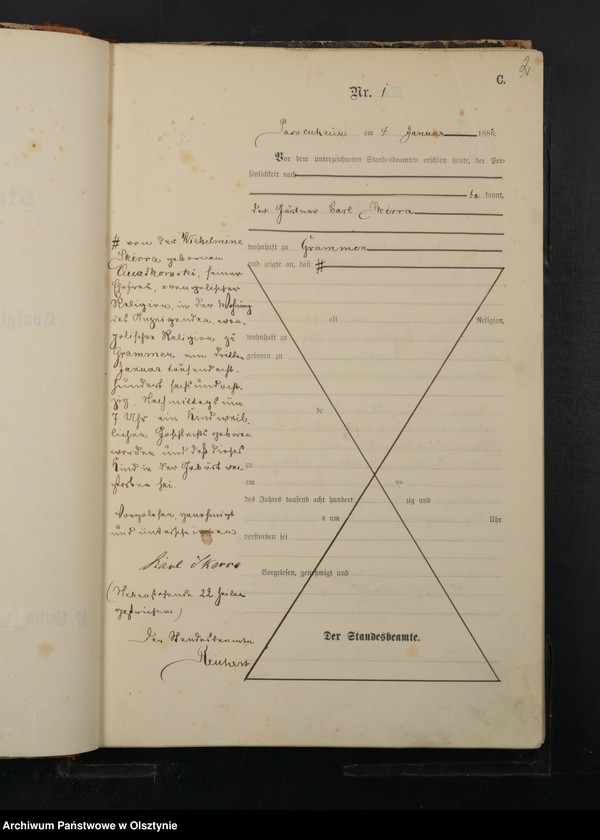 2
C.
Nr. 1
am 4 Januar 1886.
Vor dem unterzeichneten Standesbeamten erschien heute, der Per-
sönlichkeit nach
be kannt,
der Gärtner Carl Skerra
wohnhaft zu Grammen
und zeigte an, daß #
# von der Wilhelmine
Skerra geborenen
Kwiatkowski, seiner
Ehefrau, evangelischer
Religion, in der Wohnung
des Anzeigenden, evan-
gelischer Religion zu
Grammen am dritten
Januar tausend acht-
hundert sechs und acht-
zig, Nachmittags um
7 Uhr ein Kind weib-
lichen Geschlechts geboren
worden und daß dieses
Kind in der Geburt ver-
storben sei.
Vorgelesen, genehmigt
und unterschrieben
Karl Skerra
(Nebenstehende 22 Zeilen
gestrichen)
Der Standesbeamte
Reichert
alt
Religion,
wohnhaft zu
geboren zu
de
zu
am
ten
des Jahres tausend acht hundert
zig und
s um
Uhr
verstorben sei
Vorgelesen, genehmigt und
Der Standesbeamte.
Archiwum Państwowe w Olsztynie